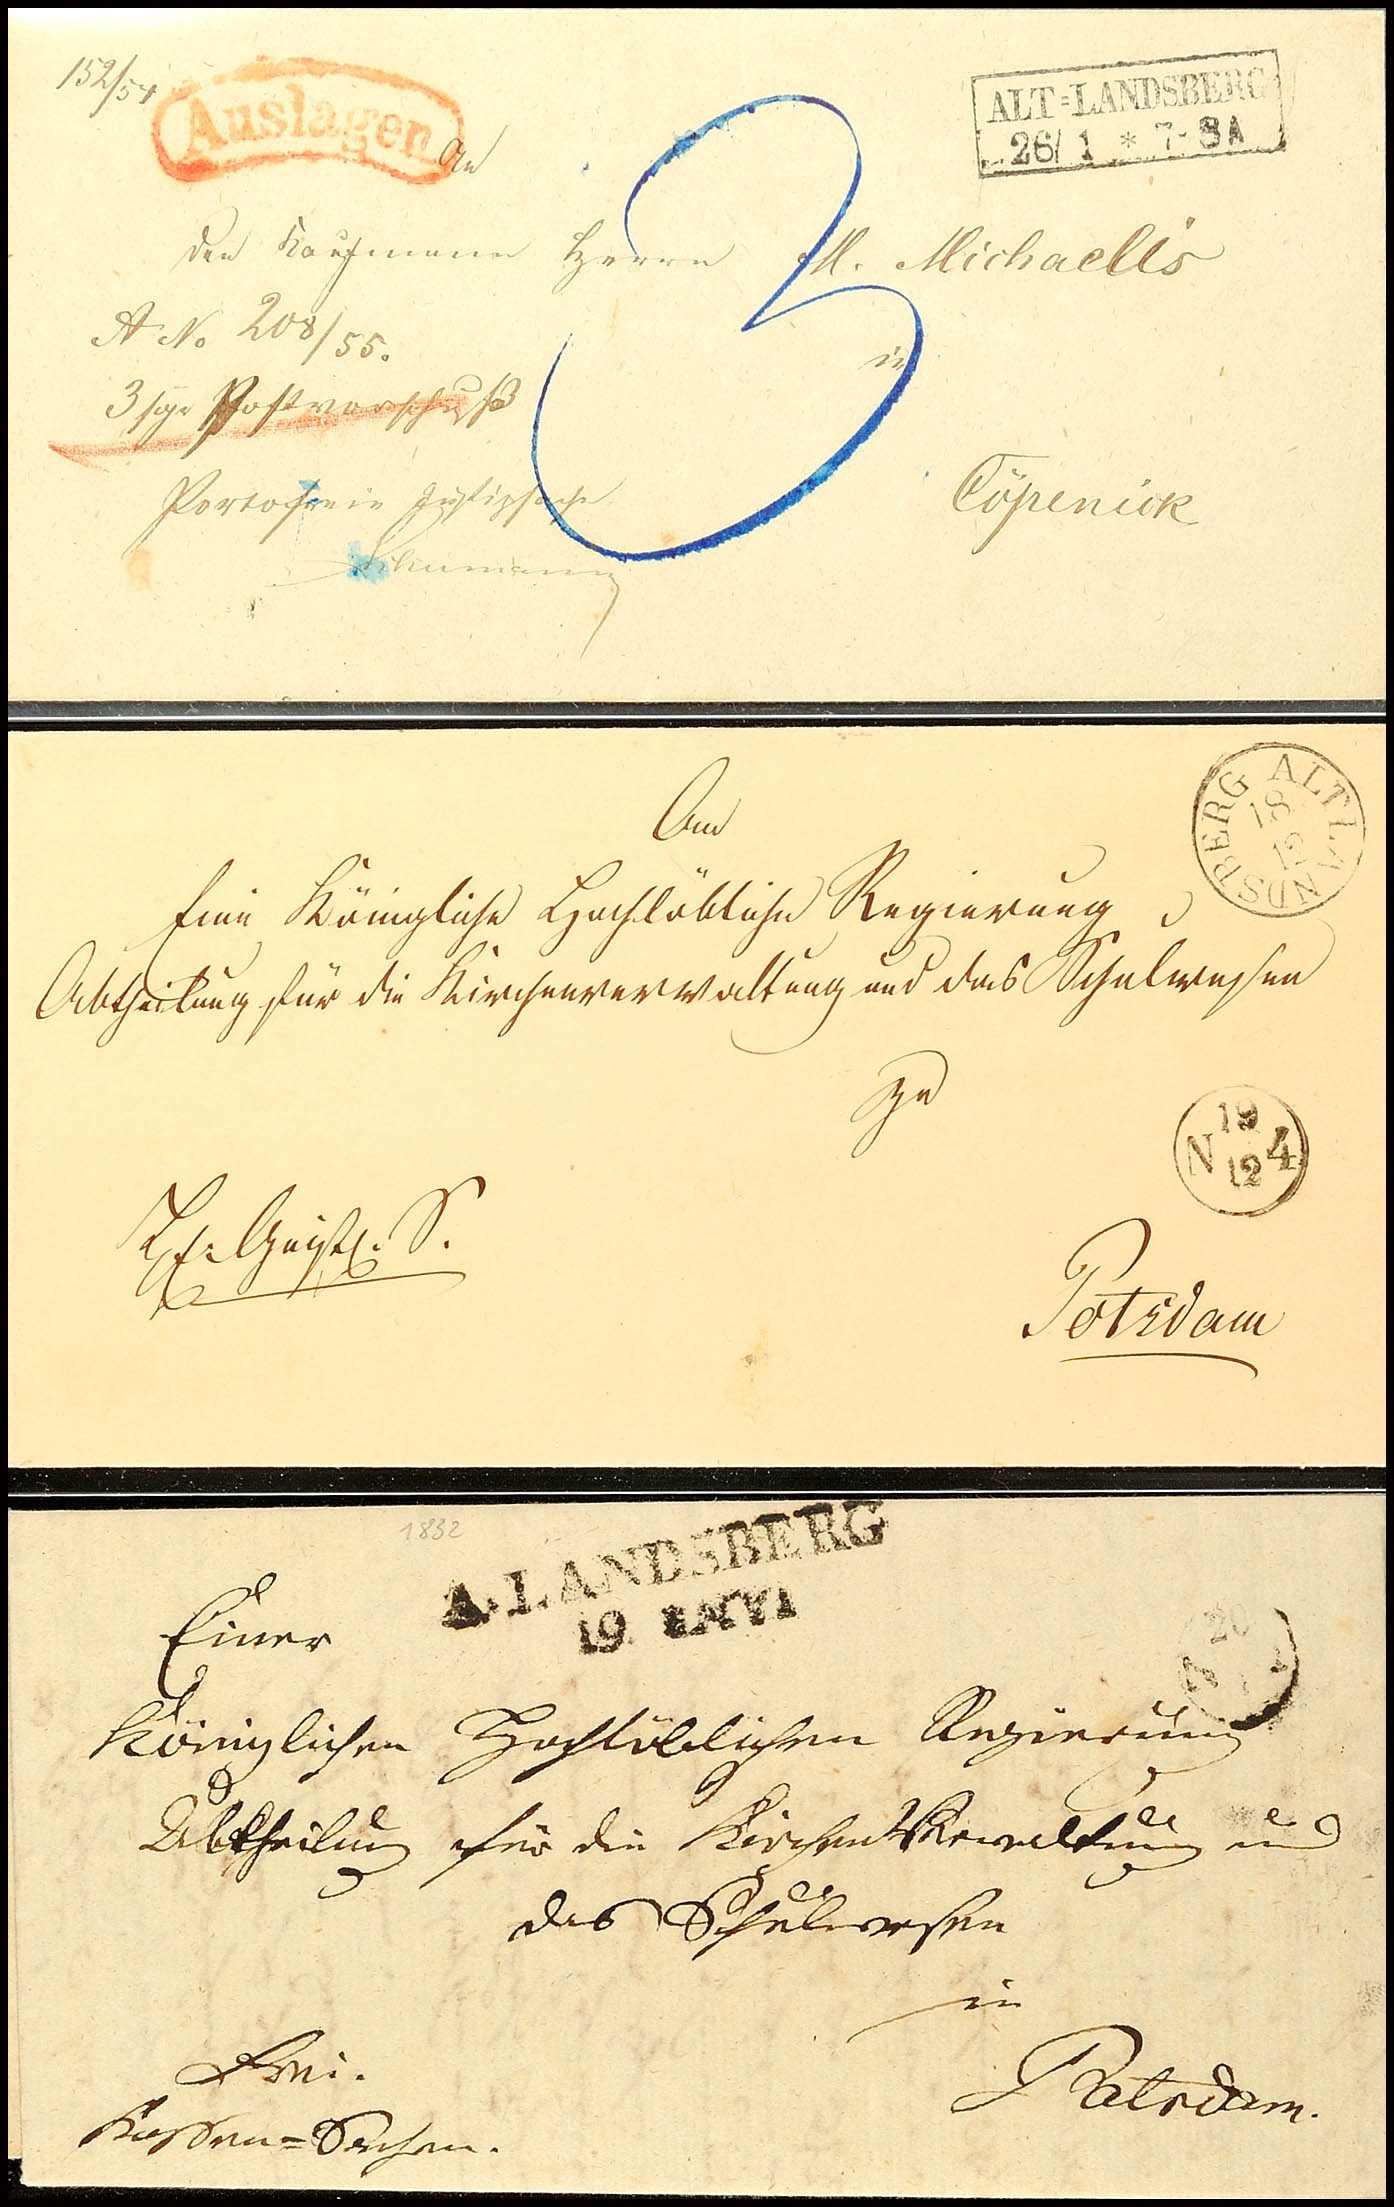 152/54
Auslagen
ALT=LANDSBERG
26/ 1 * 7-8A
An
den Kaufmann Herrn M. Michaelis
A No 208/55.
in
3 sgr Postvorschuß
Portofreie Justizsache
Cöpenick
Schumann
3
ALT LANDSBERG
18 12
An
Eine Königliche Hochlöbliche Regierung
Abtheilung für die Kirchenverwaltung und das Schulwesen
zu
N 19/12 4
S.
Potsdam
1832
A. LANDSBERG
19.
20
Einer
Königlichen Hochlöblichen Regierung
Abtheilung für die Kirchen Verwaltung und
das Schulwesen
in
Frei.
Potsdam.
Kassen=Sachen.